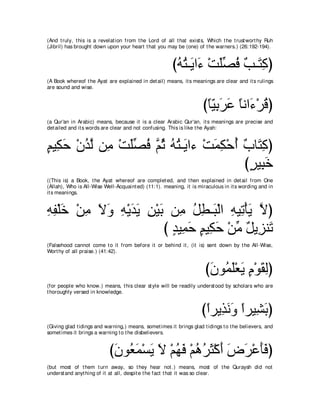 (And truly, this is a revelation from the Lord of all that exists, Which the trustworthy Ruh
(Jibril) has brought down upon your heart that you may be (one) of the warners.) (26:192-194).
(كِتَـبٌ فُصِّلَتْ ءَايَـتُهُ)
(A Book whereof the Ayat are explained in detail) means, its meanings are clear and its rulings
are sound and wise.
(قُرْءَاناً عَرَبِيّاً)
(a Qur'an in Arabic) means, because it is a clear Arabic Qur'an, its meanings are precise and
detailed and its words are clear and not confusing. This is like the Ayah:
(كِتَابٌ أُحْكِمَتْ ءايَـتُهُ ثُمَّ فُصِّلَتْ مِن لَّدُنْ حَكِيمٍ
خَبِيرٍ)
((This is) a Book, the Ayat whereof are completed, and then explained in detail from One
(Allah), Who is All-Wise Well-Acquainted) (11:1). meaning, it is miraculous in its wording and in
its meanings.
(لاَّ يَأْتِيهِ الْبَـطِلُ مِن بَيْنِ يَدَيْهِ وَلاَ مِنْ خَلْفِهِ
تَنزِيلٌ مِّنْ حَكِيمٍ حَمِيدٍ )
(Falsehood cannot come to it from before it or behind it, (it is) sent down by the All-Wise,
Worthy of all praise.) (41:42).
(لِّقَوْمٍ يَعْلَمُونَ)
(for people who know.) means, this clear style will be readily understood by scholars who are
thoroughly versed in knowledge.
(بَشِيراً وَنَذِيراً)
(Giving glad tidings and warning,) means, sometimes it brings glad tidings to the believers, and
sometimes it brings a warning to the disbelievers.
(فَأَعْرَضَ أَكْثَرُهُمْ فَهُمْ لاَ يَسْمَعُونَ)
(but most of them turn away, so they hear not.) means, most of the Quraysh did not
understand anything of it at all, despite the fact that it was so clear.